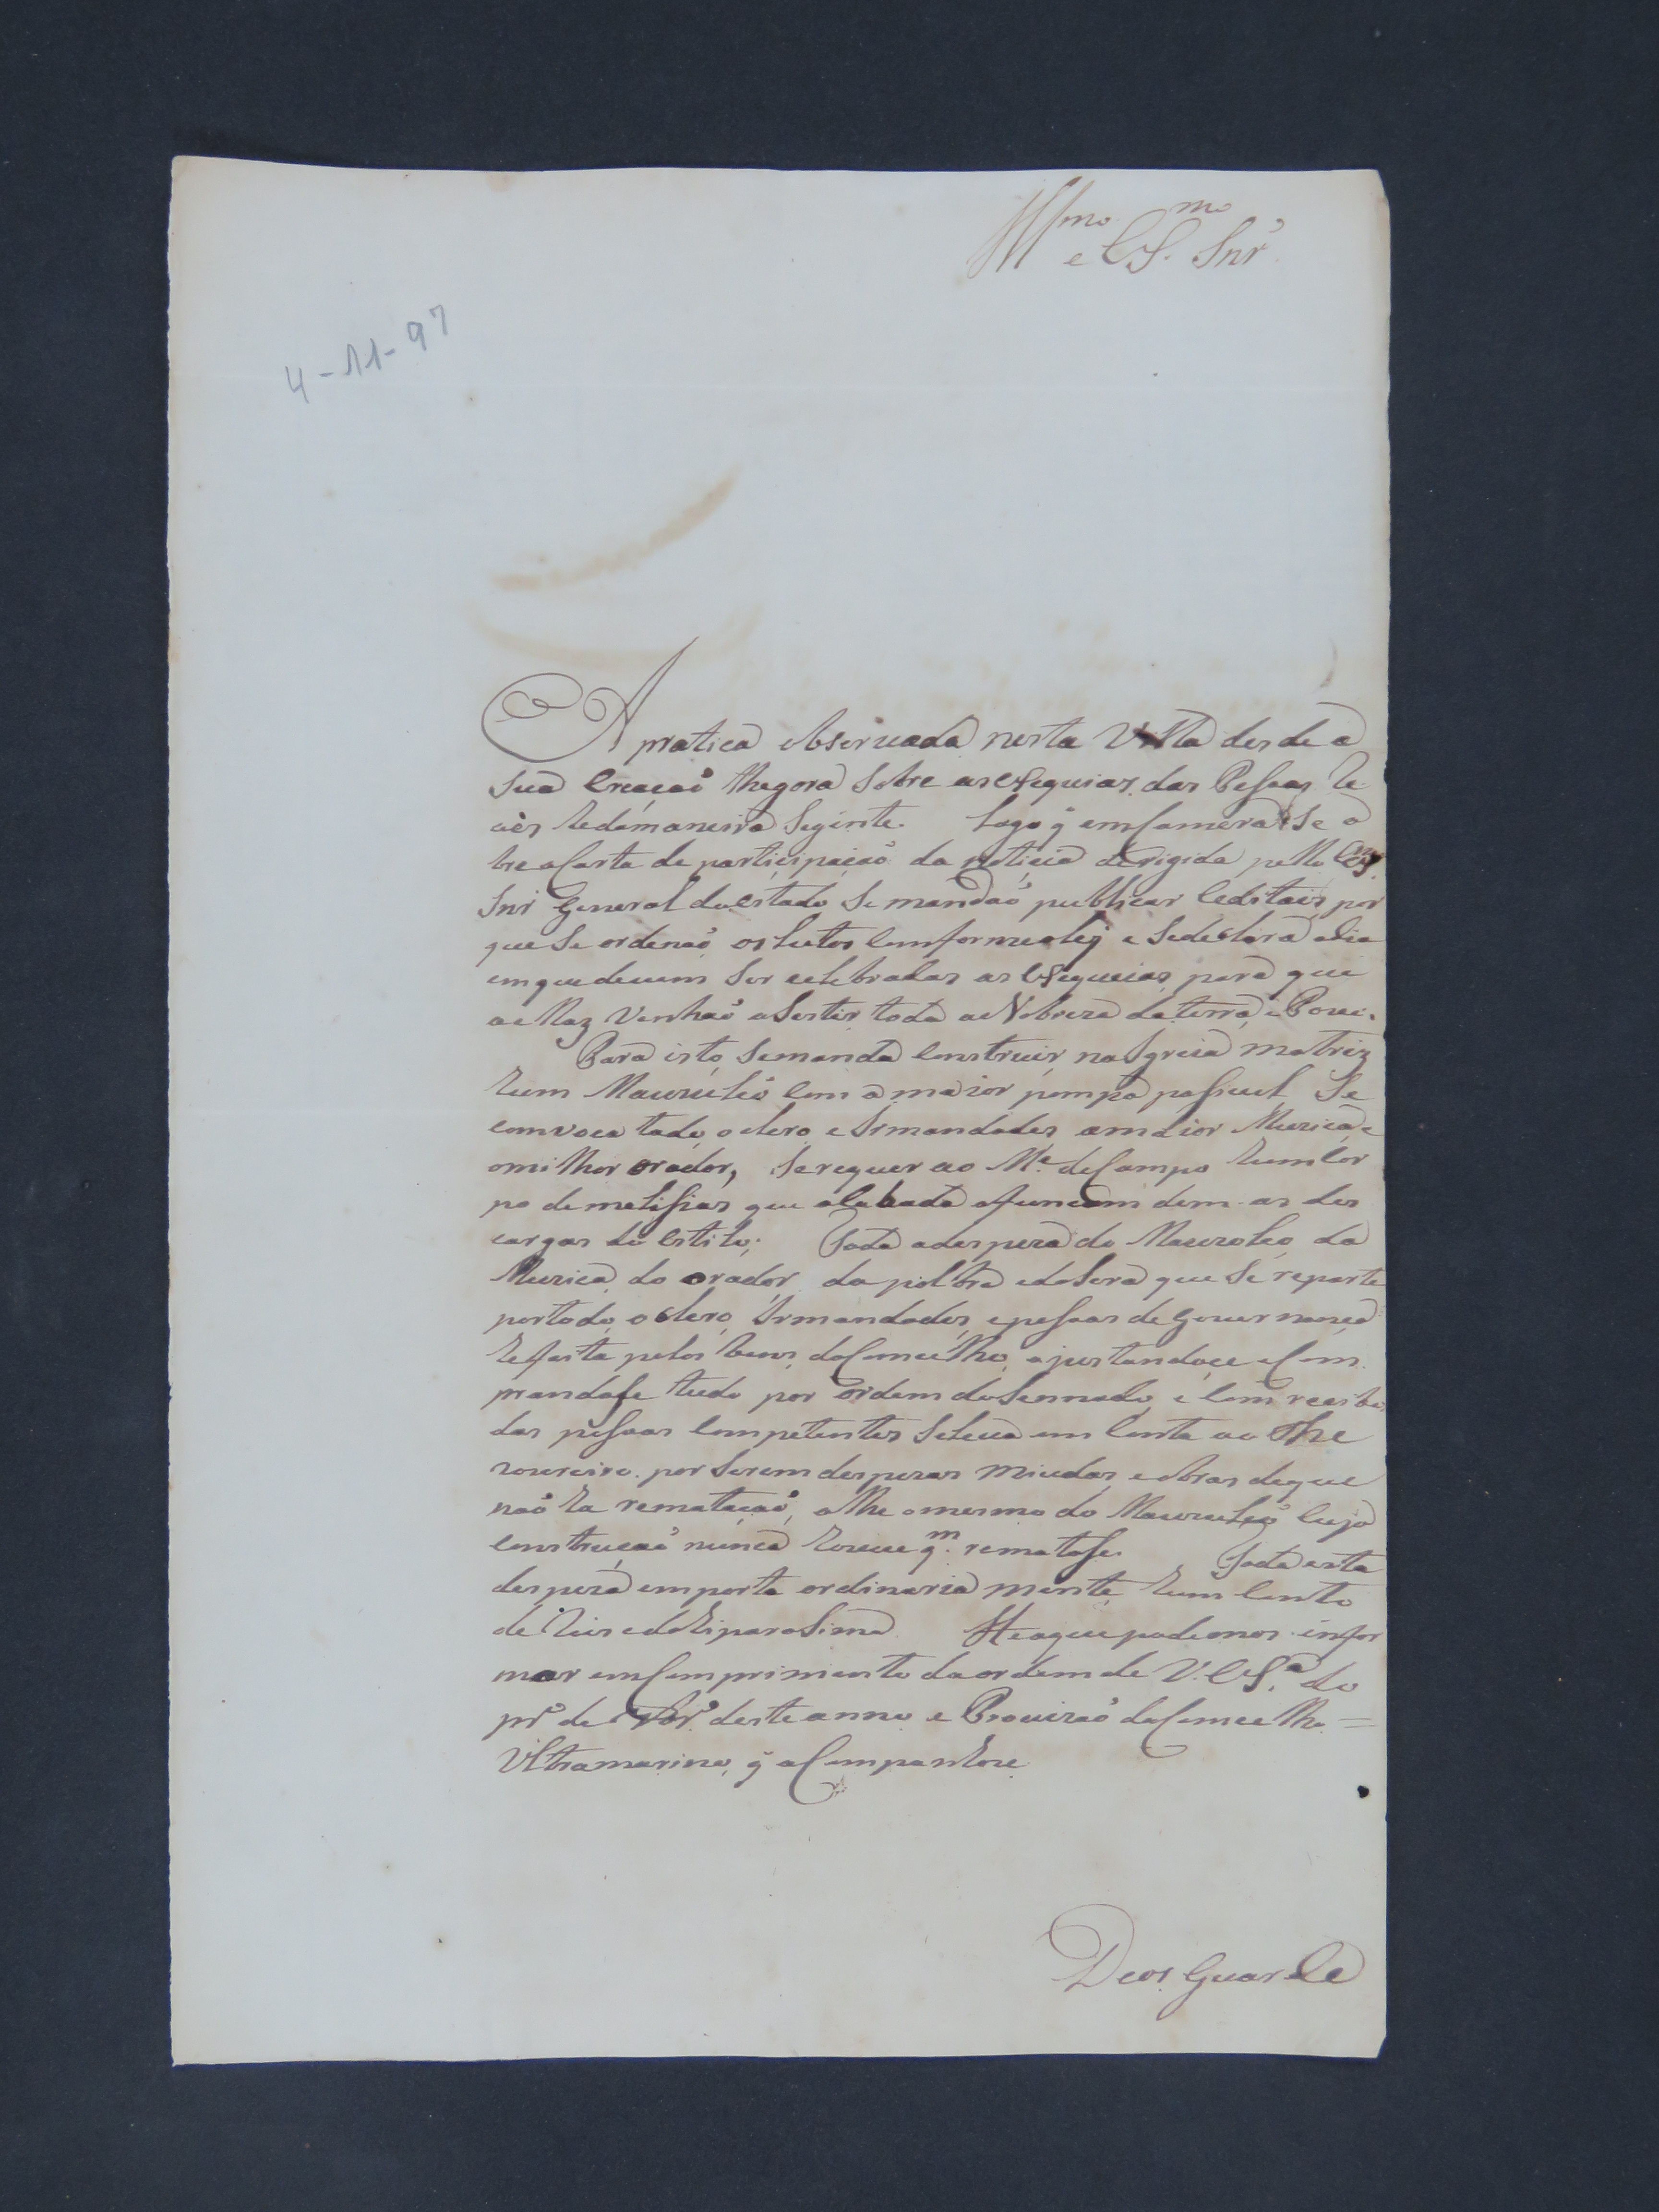 Illmo e Exmo Snr
4-11-97
A pratica observada nesta Villa des de a
Sua Creaçaõ thegora Sobre as exequias das Pessoas Re
aes he damaneira Seginte. Logo q̃ em Camera Se a
bre a Carta de participaçaõ da noticia derigida pello Exmo
Snr General do estado Se mandaõ publicar Editais por
que Se ordenaõ os lutos Comforme aley e Sedeclara odia
emque devem Ser celebradas as exequias para que
aellaz Venhaõ aSestir toda aNobreza da terra e Povo.
Para isto Semanda Construir na Igreia matriz
hum Mauzuleo Com a maior pompa possivel Se
comvoca todo oclero e Irmandades amaior Muzica e
omilhor orador, Serequer ao Me. de Campo hum Cor
po demelissias que alabada afuncam dem as des
cargas do estilo. Toda adespeza do Mauzoleo da
Muzica do orador da polvra edaSera que Se reparte
portodo oclero Irmandades epessoas de Governança
hefeita pelos bens do Concelho, ajustandoçe eCom
prandose tudo por ordem doSennado e Com recibos
das pessoas Competentes Seleva em Conta ao The
zoureiro por Serem despezas miudas eobras deque
naõ ha remataçaõ, athe omesmo do Mauzuleo Cuja
Construçaõ nunca houve q.m rematase. Toda esta
despeza emporta ordinaria mente hum Conto
de Reis edahi para Sima. He oque podemos infor
mar em Comprimento da ordem de V. Exª. do
prº de 9brº. deste anno e Provizaõ do Concelho =
Ultramarino, q̃ aCompanhou
Deos Guarde